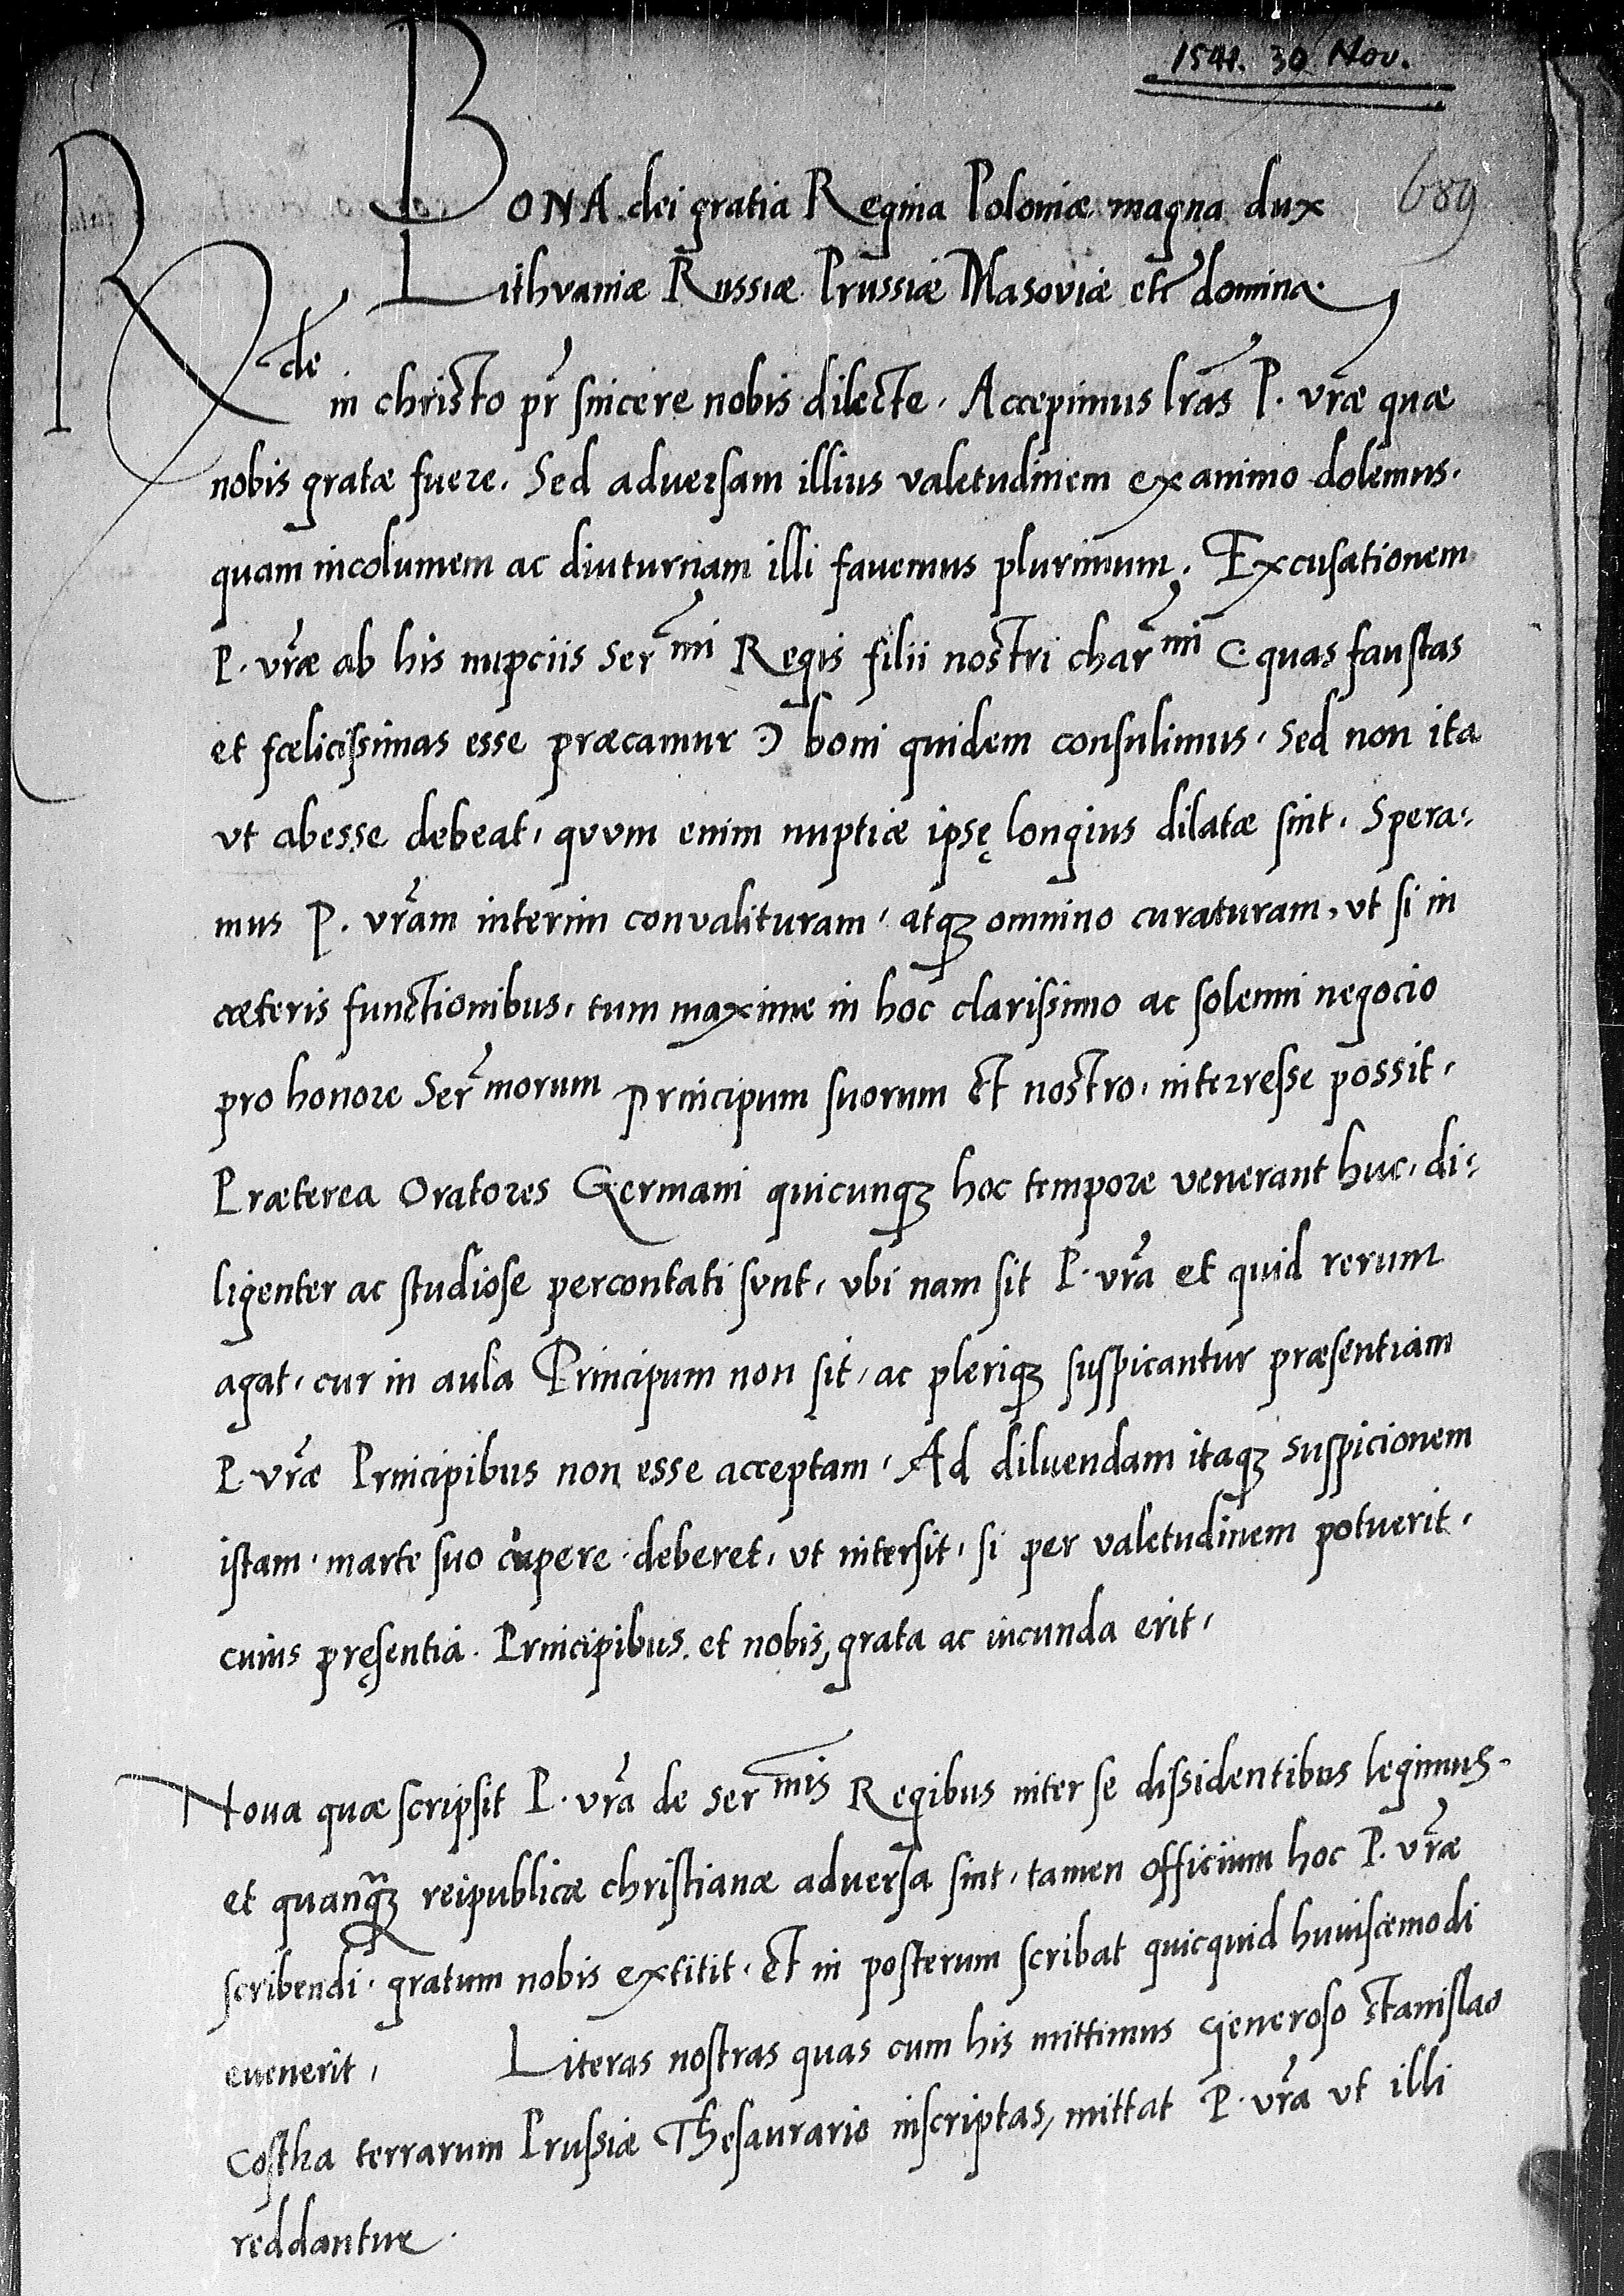 1541. 30 Nov.
689
BONA dei gratia Regina Poloniæ magna dux
Lithvaniæ Russiæ Prussiæ Masoviæ etc domina.
Rde in christo pr̃ sincere nobis dilecte. Accepimus lr̃as P. vr̃æ quæ
nobis gratæ fuere. Sed adversam illius valetudinem ex animo dolemus.
quam incolumem ac diuturnam illi favemus plurimum. Excusationem
P. vr̃æ ab his nupciis Ser̃mi Regis filii nostri char̃mi (quas faustas
et fœlicissimas esse præcamur) boni quidem consulimus. Sed non ita
vt abesse debeat. qvvm enim nuptiæ ipsę longius dilatæ sint. Spera:
mus P. vr̃am interim convalituram. atqꝫ omnino curaturam, vt si in
cæteris functionibus. tum maxime in hoc clarissimo ac solemni negocio
pro honore Ser̃morum principum suorum et nostro. interresse possit.
Præterea Oratores Germani quicunqꝫ hoc tempore venerant huc. di:
ligenter ac studiose percontati svnt. vbi nam sit P. vr̃a et quid rerum
agat. cur in aula Principum non sit. ac pleriqꝫ suspicantur præsentiam
P. vr̃æ Principibus non esse acceptam. Ad diluendam itaqꝫ suspicionem
istam. marte suo cupere deberet. vt intersit. si per valetudinem potuerit.
cuius pręsentia. Principibus. et nobis, grata ac iucunda erit.
Nova quæ scripsit P. vr̃a de Sermis Regibus inter se dissidentibus legimus.
et quanqꝫ reipublicæ christianæ adversa sint. tamen officium hoc P. vr̃æ
scribendi. gratum nobis extitit. Et in posterum scribat quicquid huiuscemodi
evenerit. Literas nostras quas cum his mittimus Generoso Stanislao
Costka terrarum Prussiæ Thesaurario inscriptas, mittat P. vr̃a vt illi
reddantur.